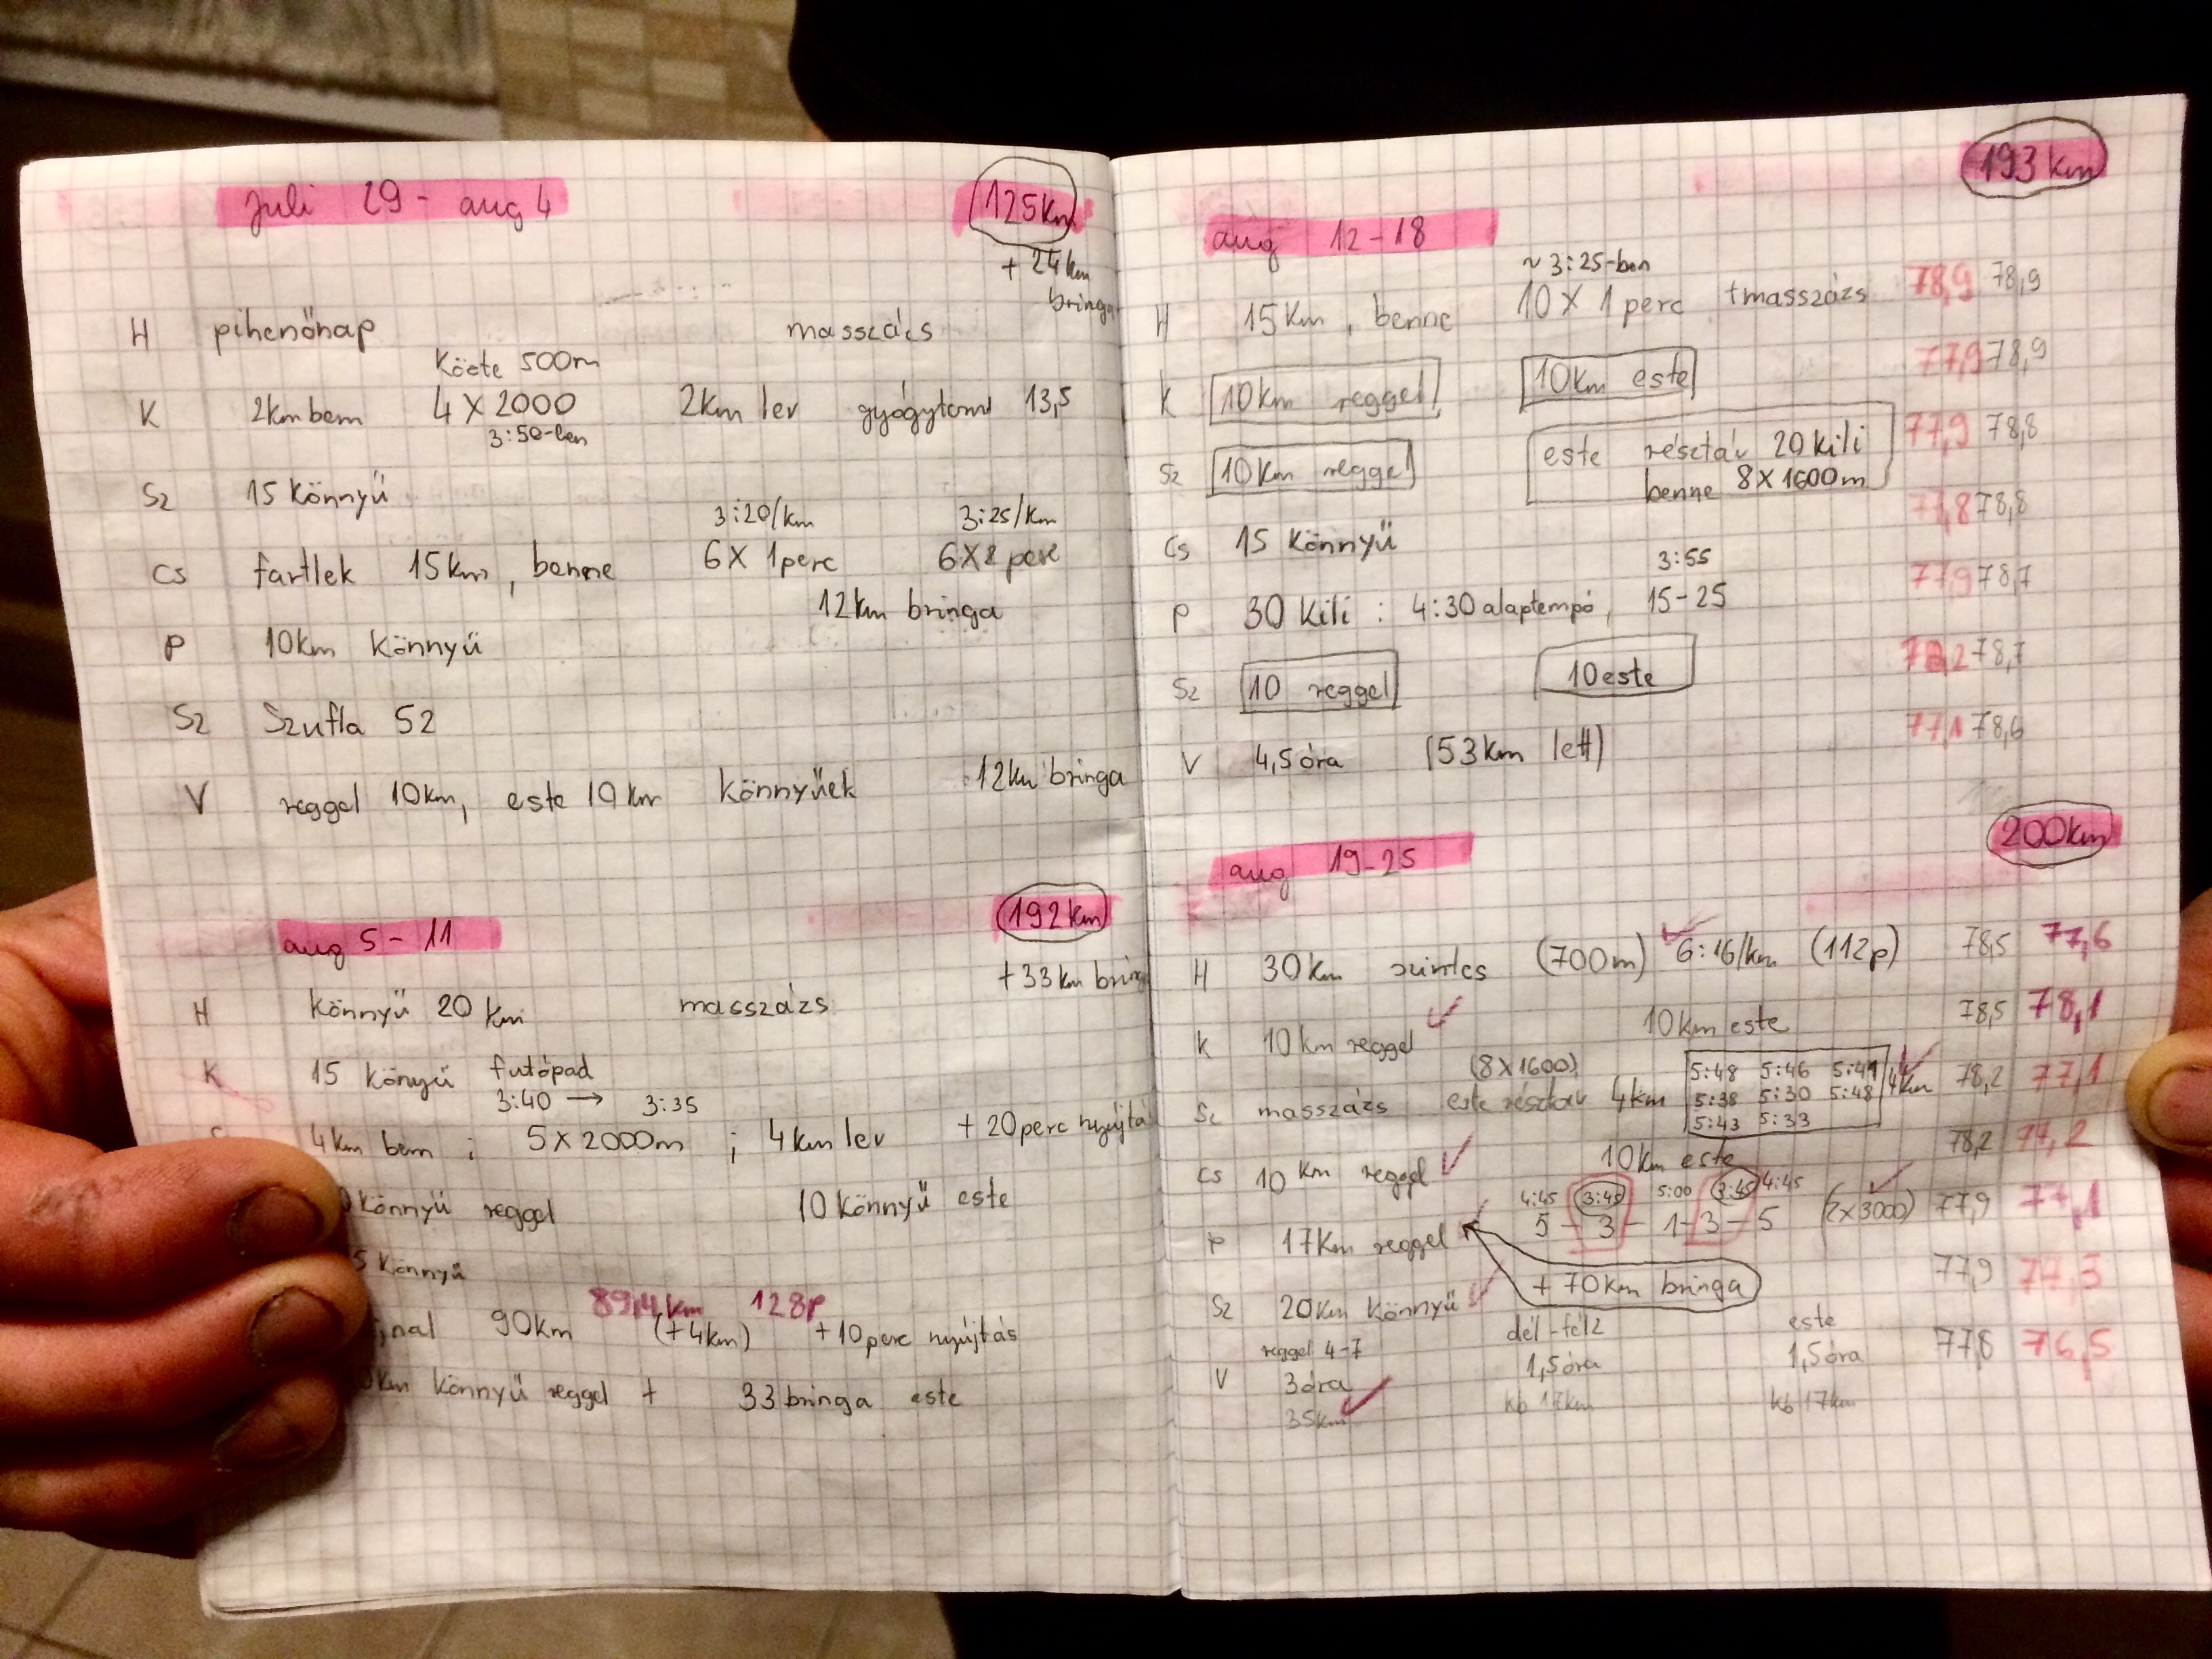 juli 29 - aug 4
125km
+ 24km
bringa
H pihenőnap masszázs
Közte 500m
K 2km bem 4 X 2000 2km lev gyógytorna 13,5
3:50-ben
Sz 15 könnyű
3:20/km 3:25/km
Cs fartlek 15km, benne 6 X 1perc 6X2 perc
12km bringa
P 10km könnyű
Sz Szufla 52
V reggel 10km, este 10km könnyűek 12km bringa
aug 5 - 11
192km
+33km bring
H könnyű 20 km masszázs
K 15 könyű futópad
3:40 → 3:35
4km bem ; 5 X 2000m ; 4km lev + 20perc nyújtá
könnyű reggel 10 könnyű este
5 könnyű
89,4km 128p
nal 90km (+4km) +10perc nyújtás
km könnyű reggel + 33 bringa este
193 km
aug 12-18
~ 3:25-ben
H 15km, benne 10 X 1 perc +masszázs 78,9 78,9
K 10km reggel 10km este 77,9 78,9
Sz 10km reggel este résztáv 20 kili 77,9 78,8
benne 8X1600m
Cs 15 könnyű 77,8 78,8
3:55
P 30 kili : 4:30 alaptempó, 15-25 77,9 78,7
Sz 10 reggel 10 este 78,2 78,7
V 4,5óra (53km lett) 77,1 78,6
200km
aug 19-25
H 30km szintes (700m) 6:16/km (112p) 78,5 77,6
K 10 km reggel 10km este 78,5 78,1
(8X1600) 5:48 5:46 5:41
Sz masszázs este résztáv 4km 5:38 5:30 5:48 4km 78,2 77,1
5:43 5:33
Cs 10 km reggel 10km este 78,2 77,2
4:45 3:45 5:00 3:45 4:45
P 17km reggel 5 - 3 - 1 - 3 - 5 (2x3000) 77,9 77,1
+ 70km bringa
Sz 20km könnyű 77,9 77,3
reggel 4-7 dél-fél2 este
V 3óra 1,5óra 1,5óra 77,8 76,5
35km kb 17km kb 17km